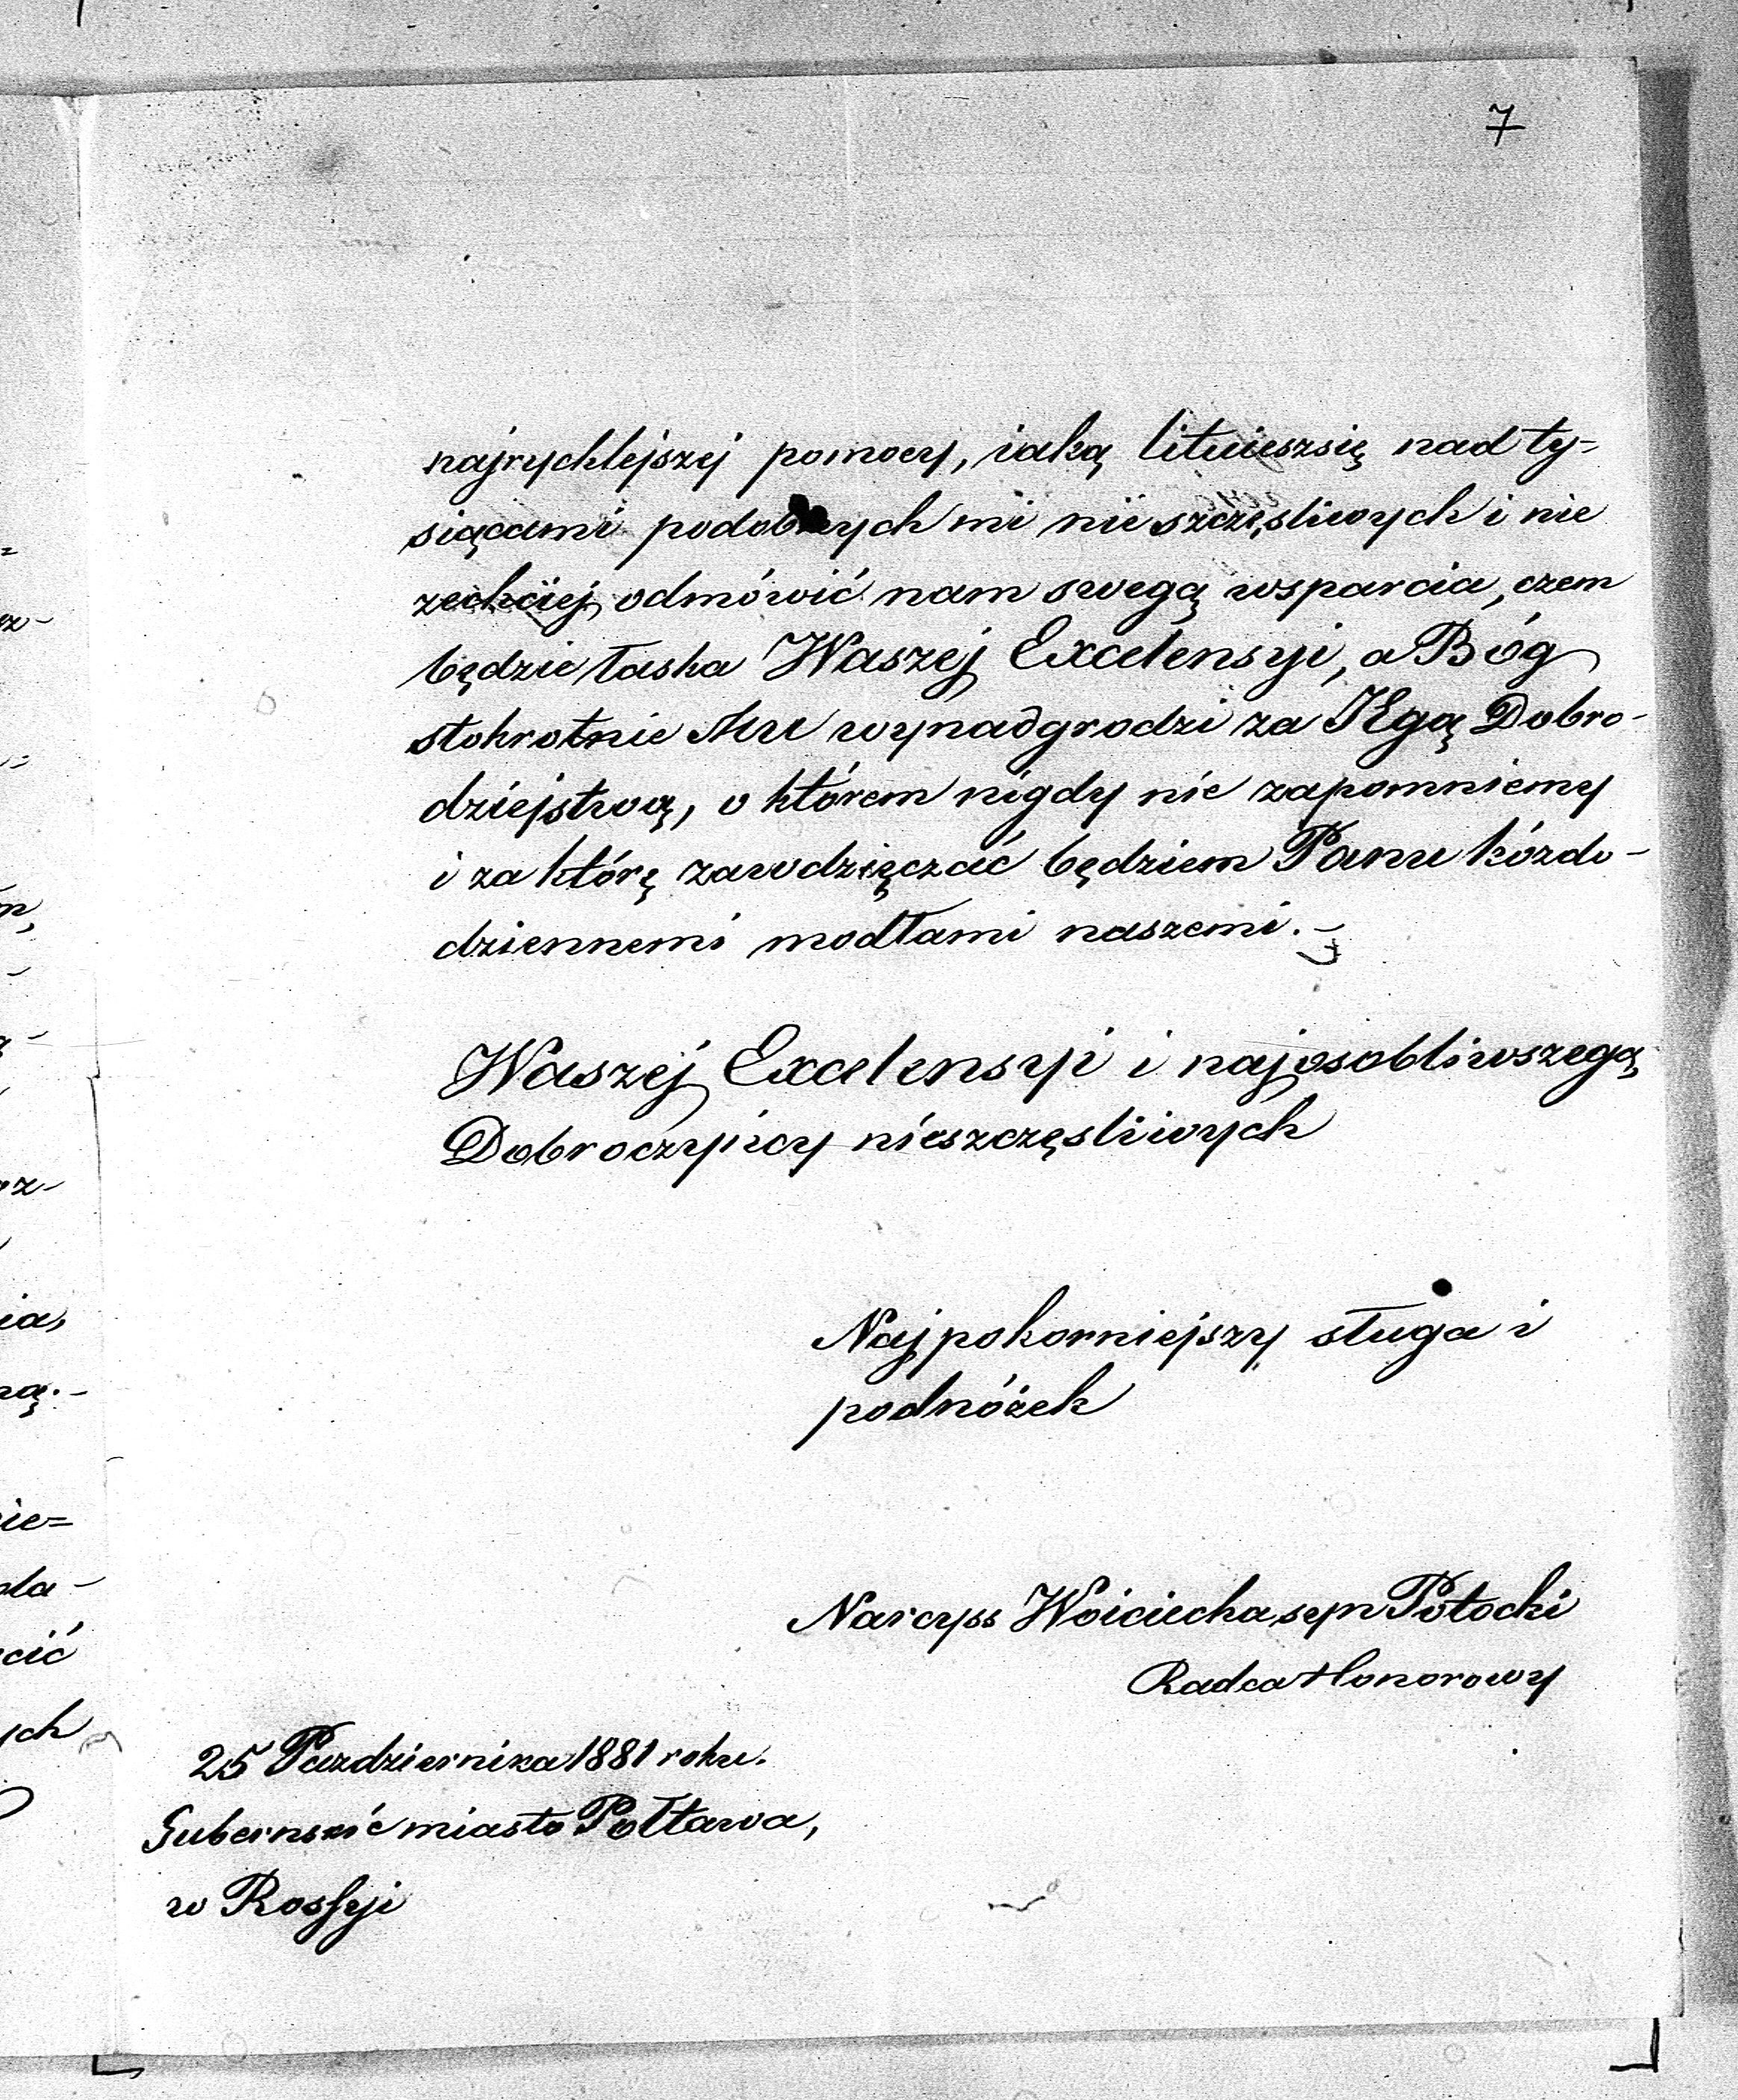 7
najrychlejszej pomocy, iaką lituieszsię nad ty=
siącami podobnych mi nieszczęsliwych i nie
zechciej odmówić nam swegą wsparcia, czem
będzie łaska Waszej Excelensyi, a Bóg
stokrotnie Mu wynadgrodzi za Iegą Dobro-
dziejstwą, o którem nigdy nie zapomniemy
i za którę zawdzięczać będziem Panu kózdo-
dziennemi modłami naszemi.-
Waszej Excelensyi i najosobliwszegą
Dobroczyńcy nieszczęsliwych
Najpokorniejszy sługa i
podnóżek
Narcyss Woiciecha syn Potocki
Radca Honorowy
25 Pazdziernika 1881 roku.
Gubernskié miasto Połtawa,
w Rossyi